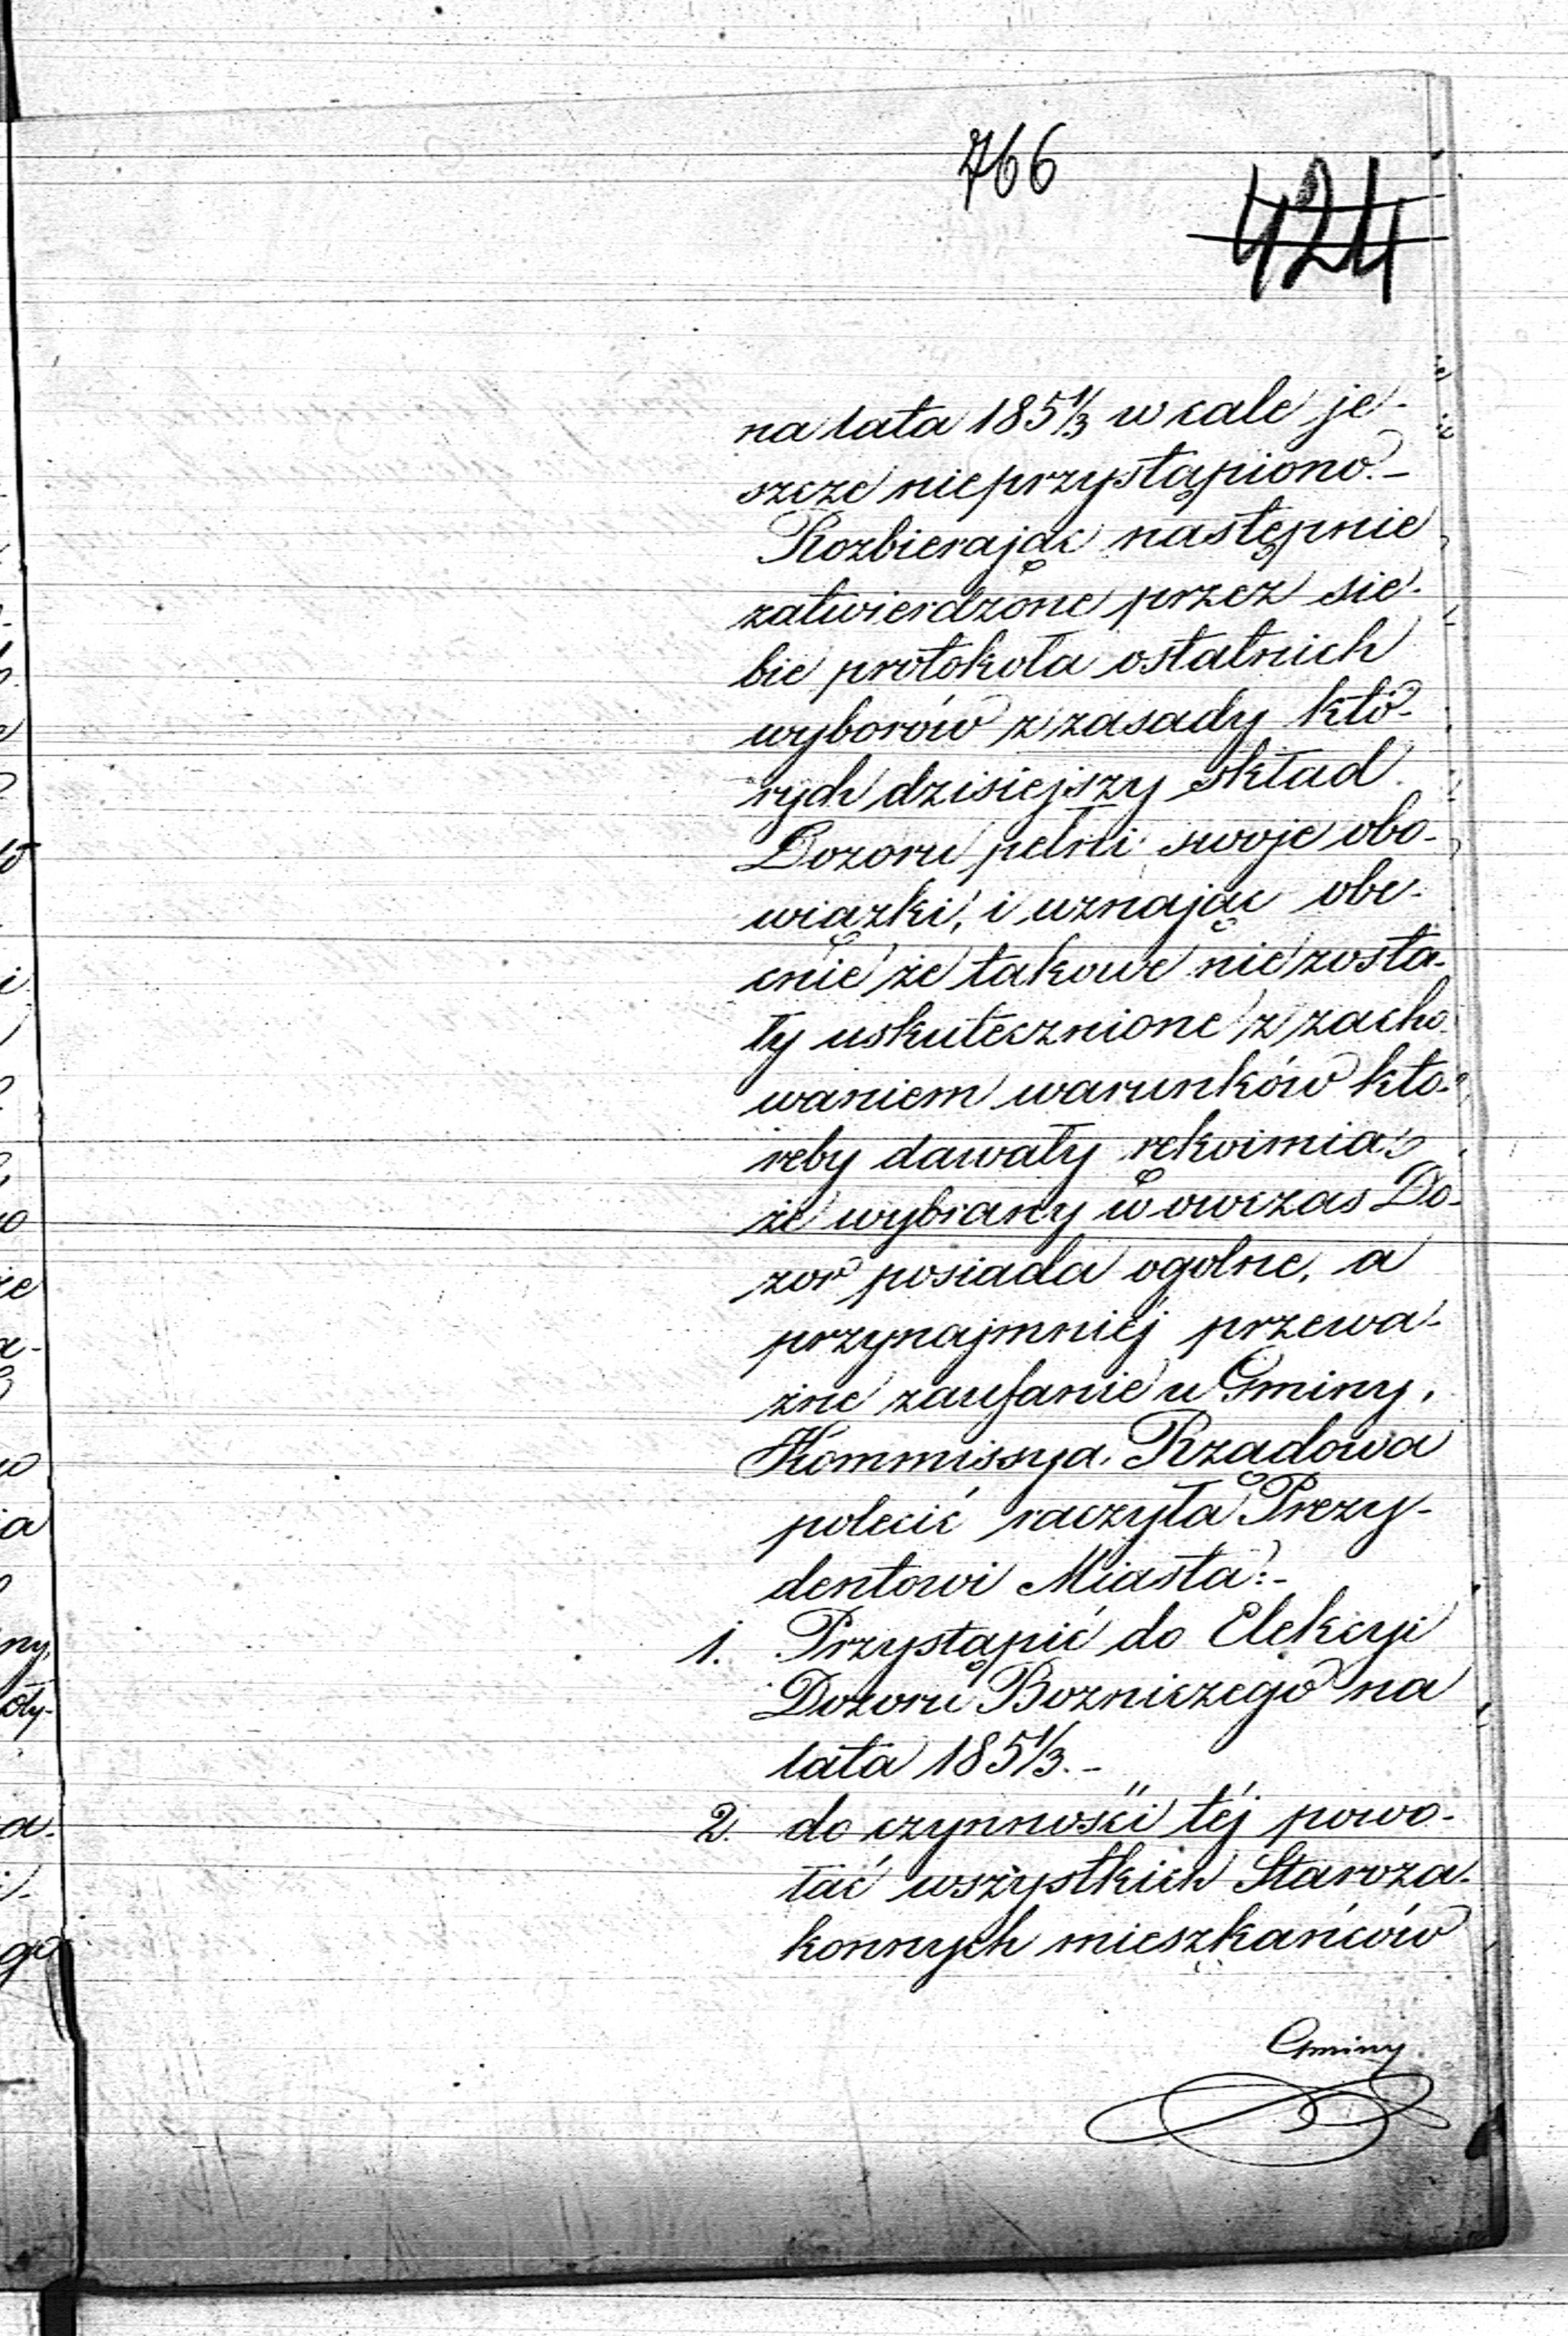 766
424
na lata 185 1/3 w cale je-
szcze nieprzystąpiono.-
Rozbierając następnie
zatwierdzone przez sie-
bie protokoła ostatnich
wyborów z zasady któ-
rych dzisiejszy skład
Dozoru pełni swoje obo-
wiązki, i uznając obe-
cnie że takowe nie zosta-
ły uskutecznione z zacho-
waniem warunków któ-
reby dawały rękoimia
że wybrany w owczas Do-
zor posiada ogolne, a
przynajmniéj przewa-
żne zaufanie u Gminy,
Kommissya Rządowa
polecić raczyła Prezy-
dentowi Miasta:-
1. Przystąpić do Elekcyi
Dozoru Bozniczego na
lata 185 1/3.-
2. do czynności téj powo-
łać wszystkich Staroza-
konnych mieszkańców
Gminy